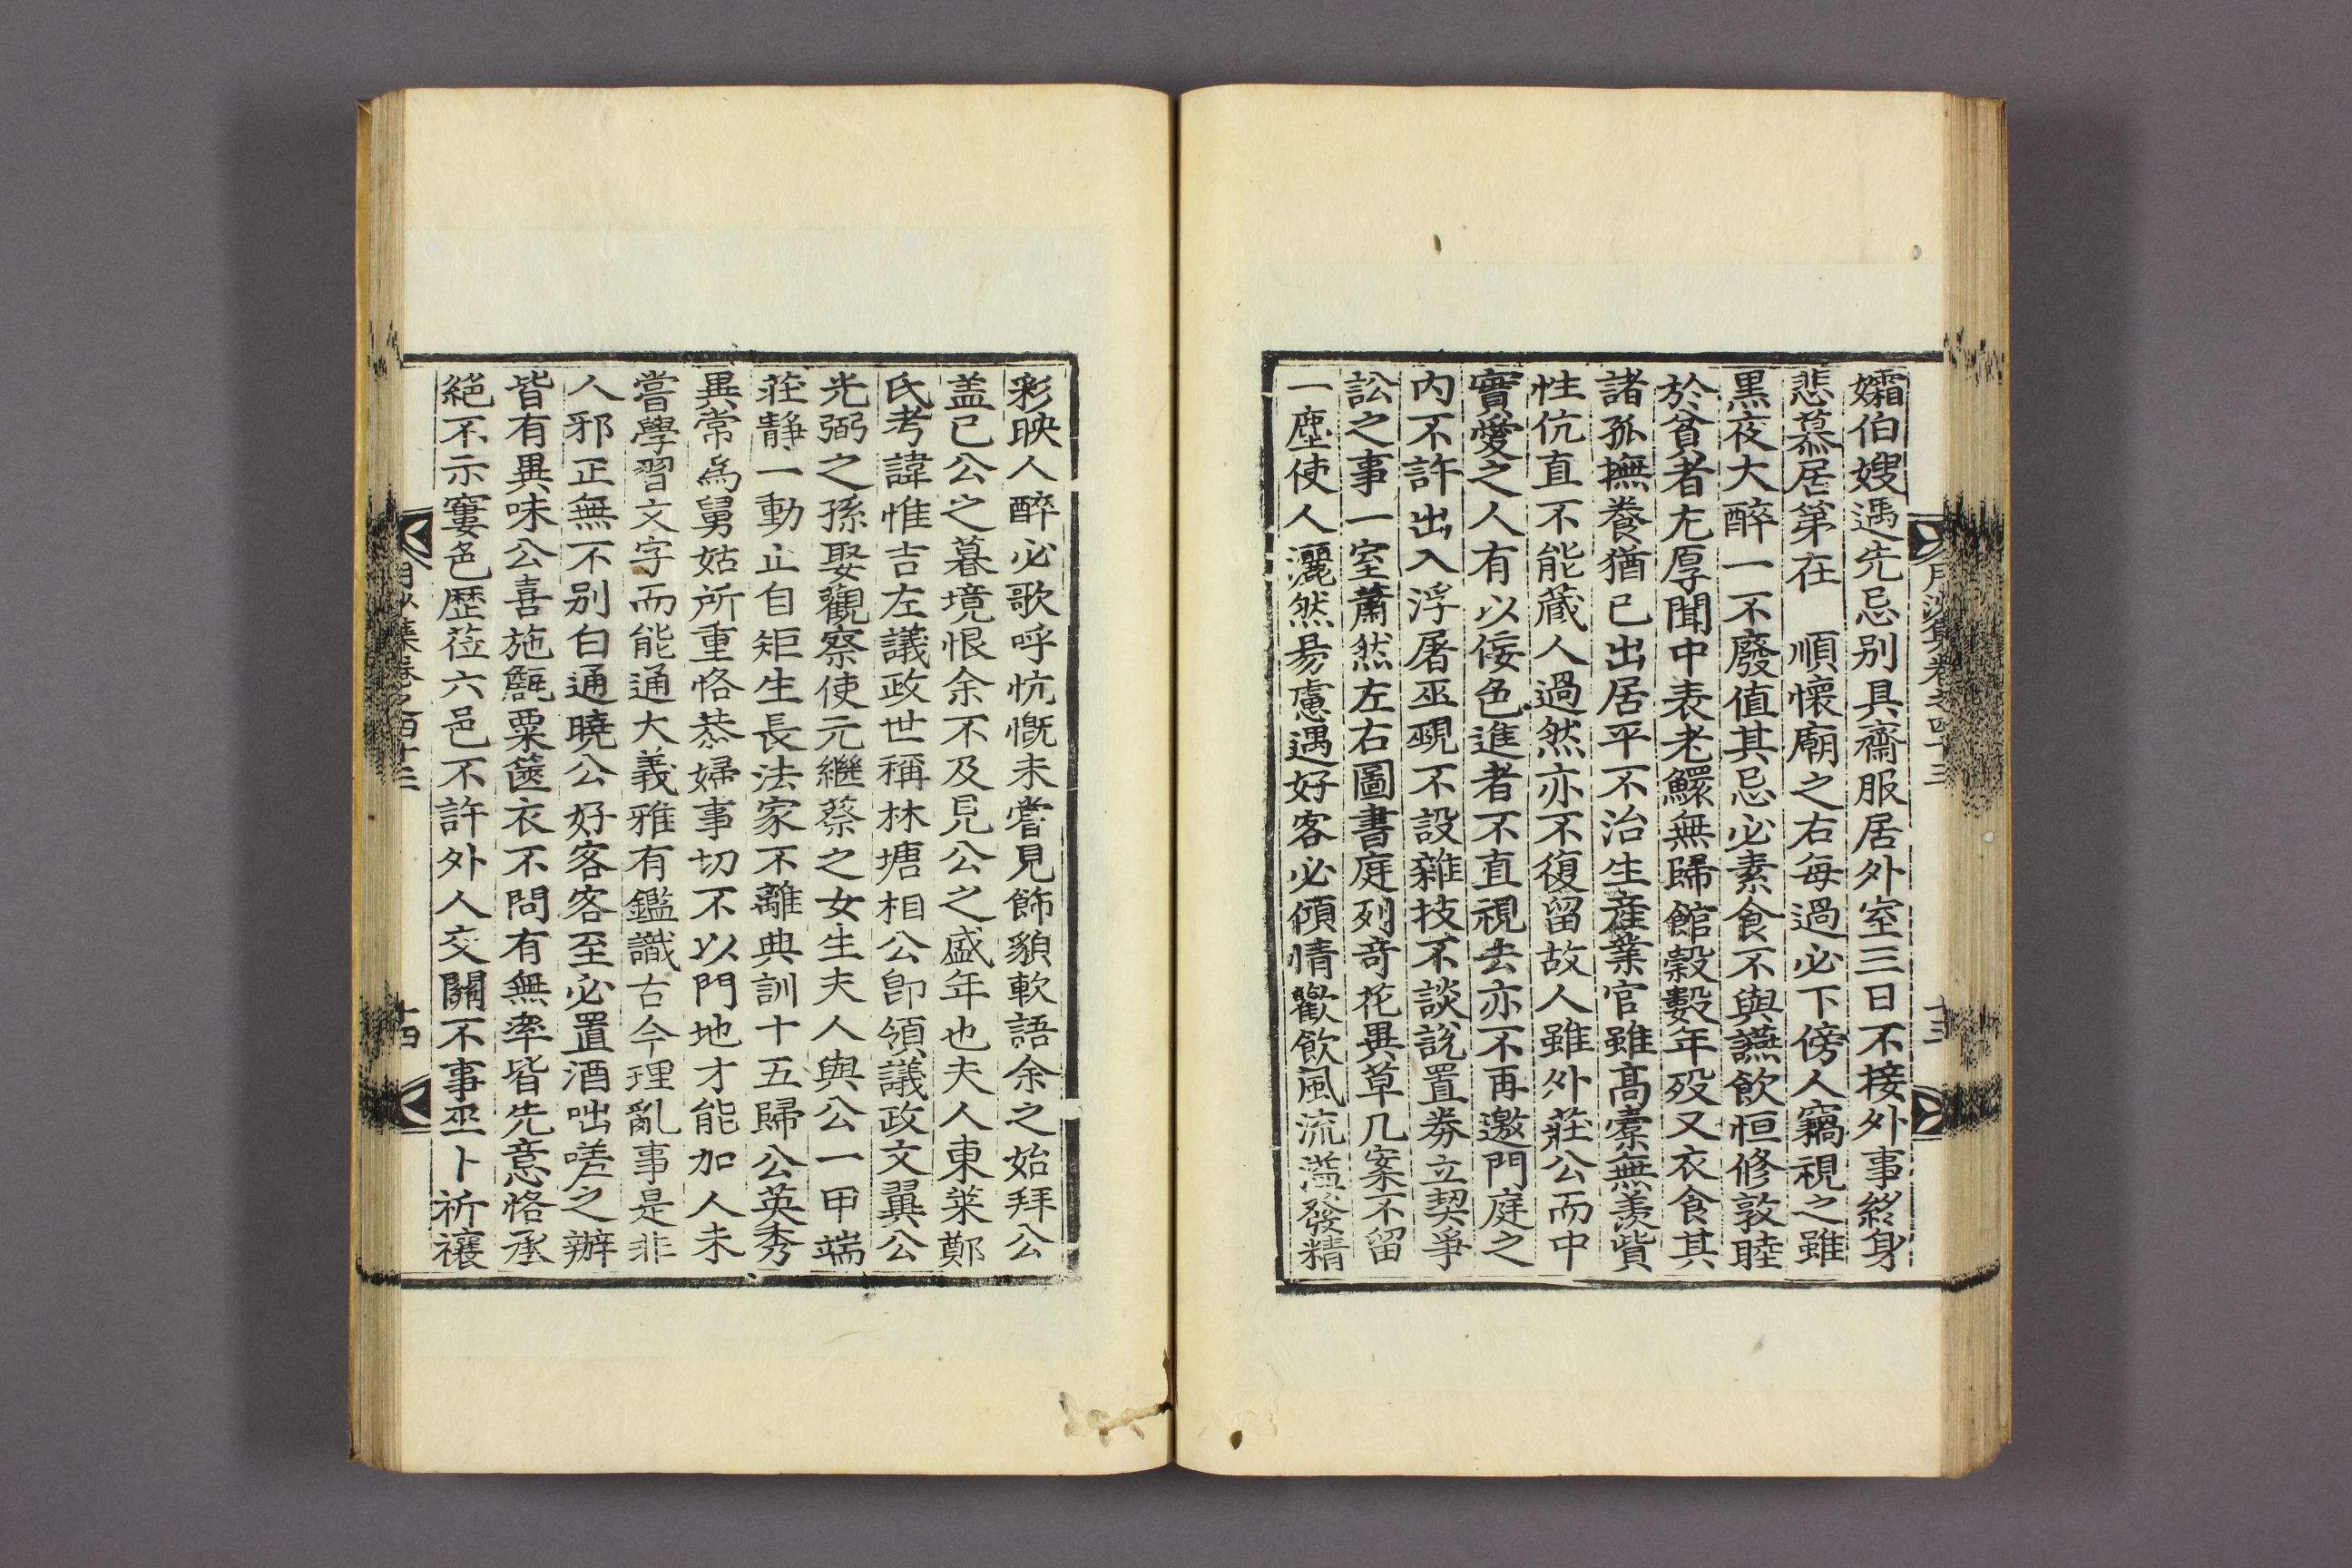 孀伯嫂遇先忌别具齋服居外室三日不接外事終身
悲慕居第在　順懷廟之右每過必下傍人竊視之雖
黒夜大醉一不廢值其忌必素食不與讌飲恒修敦睦
於貧者尤厚聞中表老鰥無歸館穀數年殁又衣食其
諸孤撫養猶已出居平不治生産業官雖高橐無羨貲
性伉直不能蔵人過然亦不復留故人雖外莊公而中
實愛之人有以倿色進者不直視去亦不再邀門庭之
内不許出入浮屠巫覡不設雜技不談說置券立契爭
訟之事一室蕭然左右圖書庭列竒花異草几案不留
一塵使人灑然昜慮遇好客必傾情歡飲風流滥發精
月沙集卷之四十三
十三
彩映人醉必歌呼忼慨未嘗見飾貌軟語余之始拜公
盖已公之暮境恨余不及見公之盛年也夫人東萊鄭
氏考諱惟吉左議政世稱林塘相公卽領議政文翼公
光弼之孫娶觀察使元繼蔡之女生夫人與公一甲端
莊静一動止自矩生長法家不離典訓十五歸公英秀
異常爲舅姑所重恪恭婦事切不以門地才能加人未
嘗學習文字而能通大義雅有鑑識古今理亂事是非
人邪正無不别白通曉公好客客至必置酒咄嗟之辦
皆有異味公喜施甔粟篋衣不問有無率皆先意恪承
絕不示窶色歷莅六邑不許外人交關不事巫卜祈禳
月沙集卷之四十三
十四